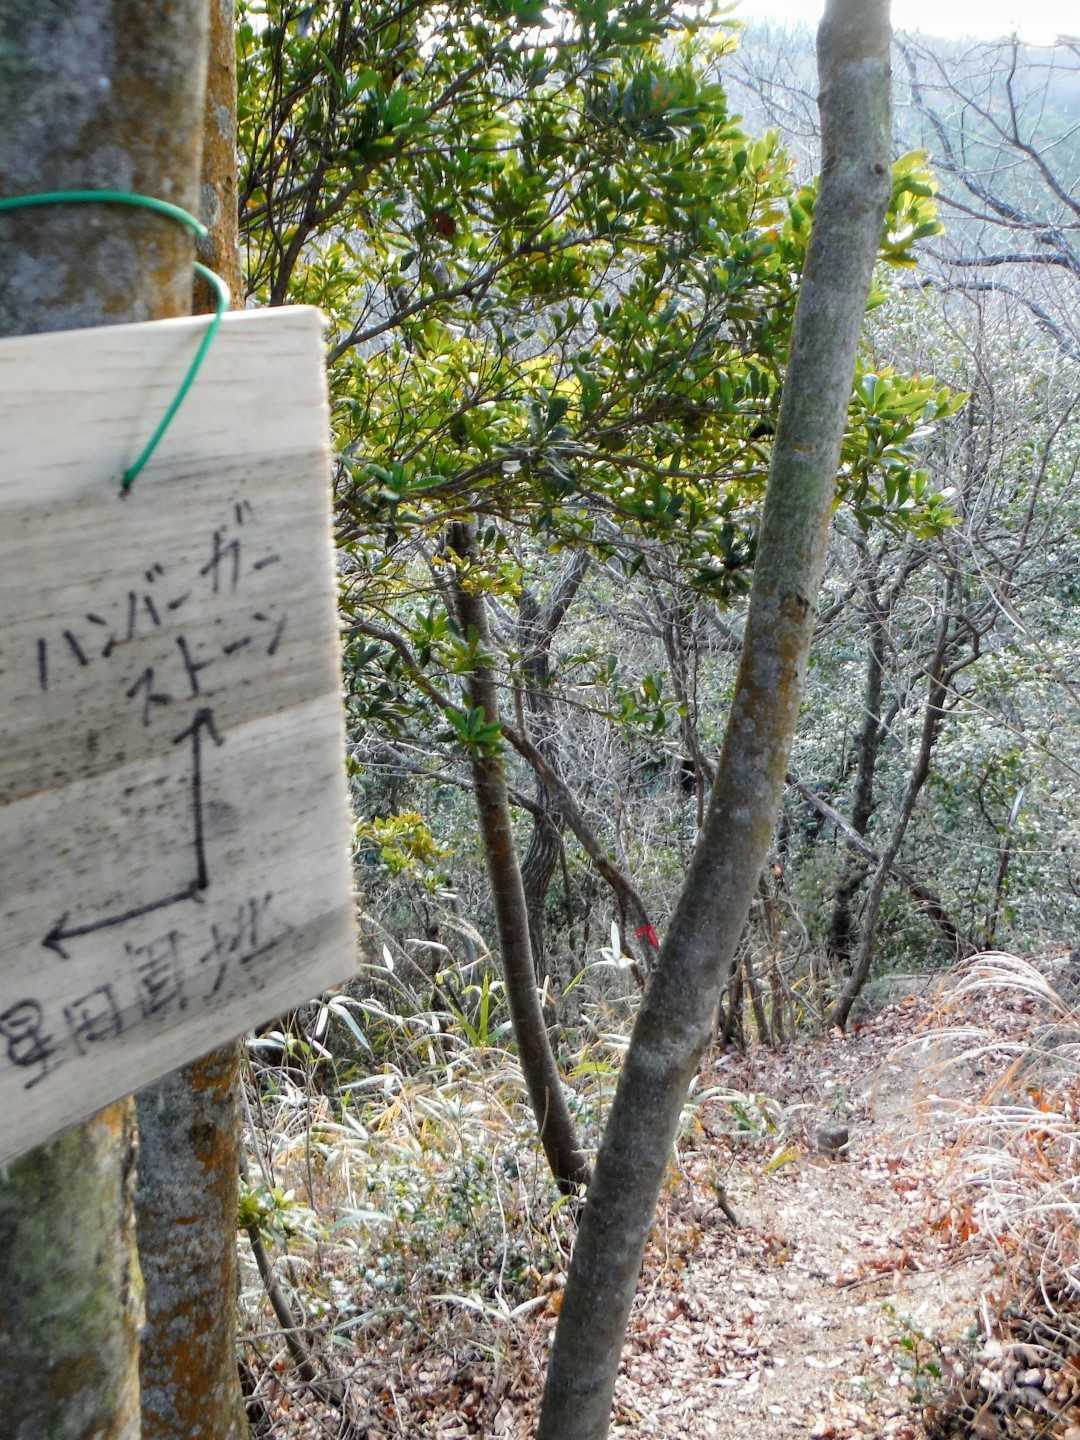 ハンバーガー
ストーン
星田園地